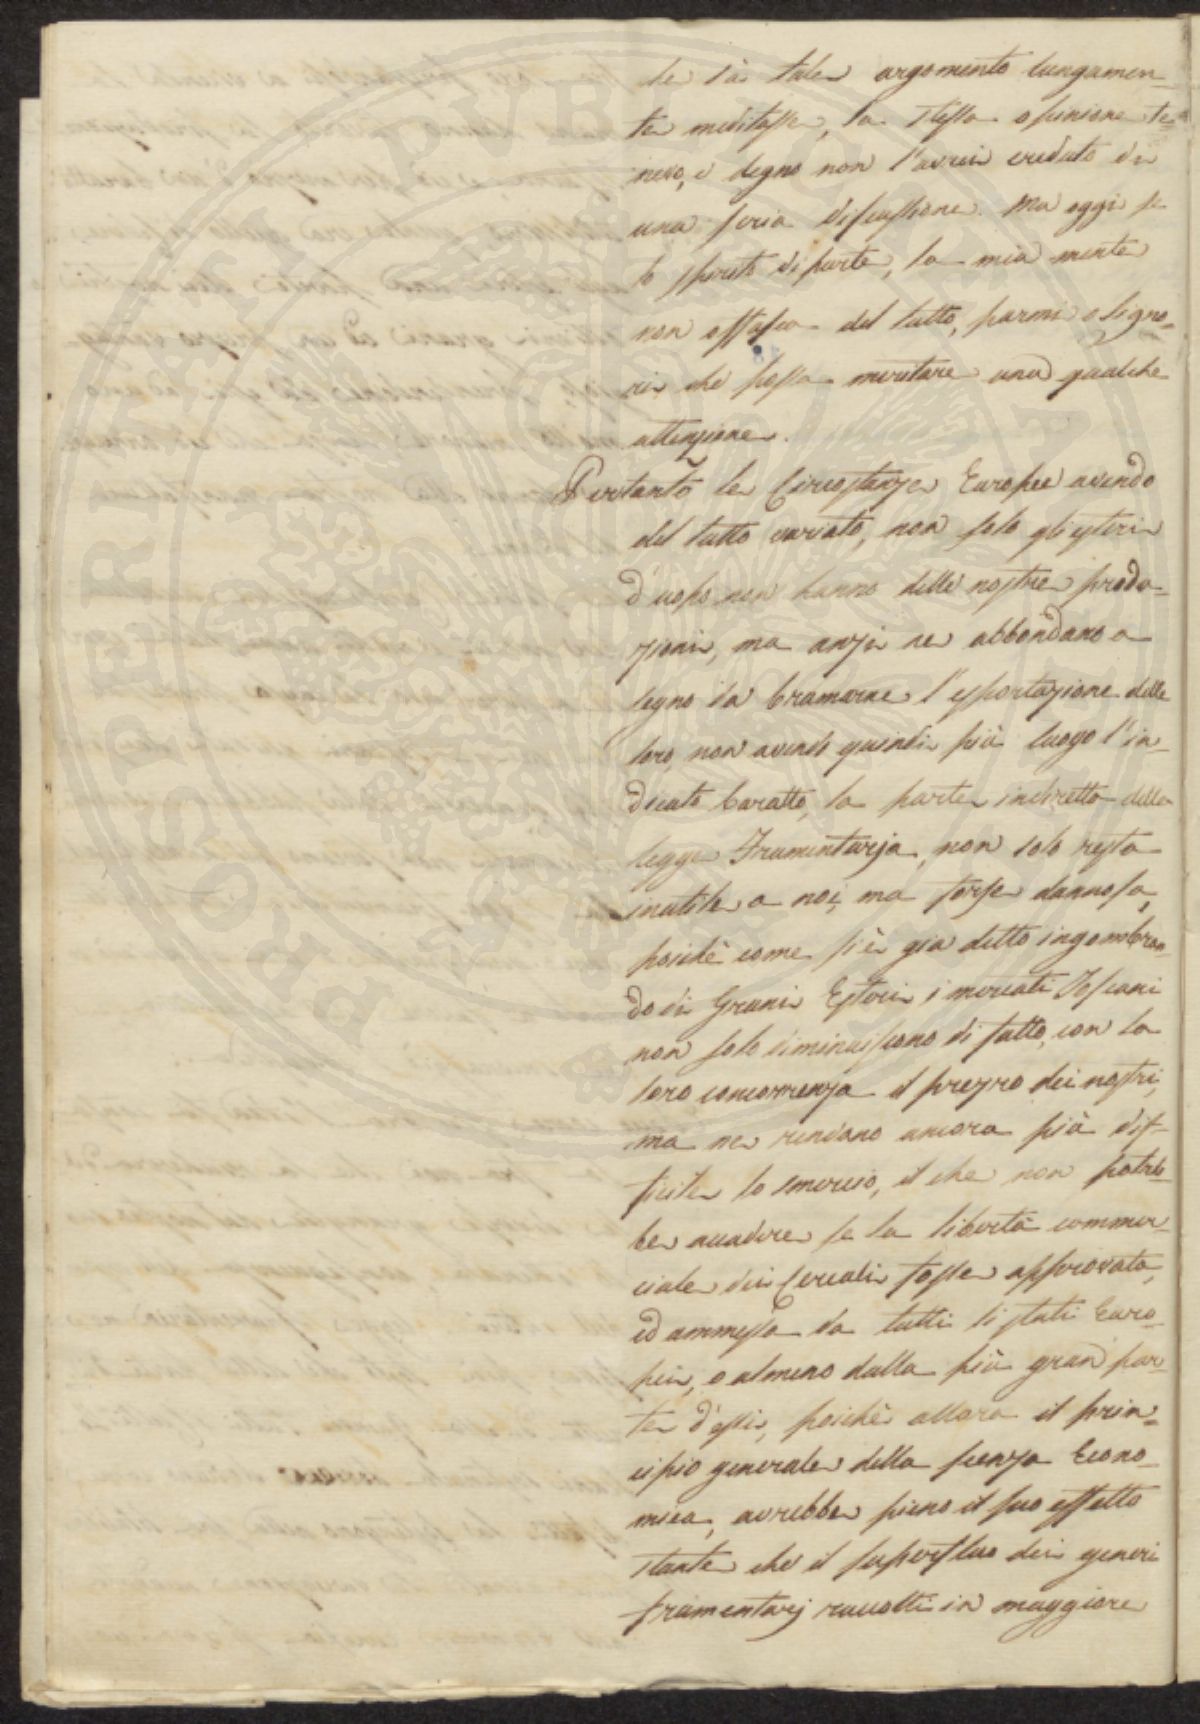 che sù tale argomento lungamen-
te meditasse, la stessa opinione te-
neva, e degno non l'avrei creduto di
una seria discussione. Ma oggi se
lo spirito di parte, la mia mente
non offusca del tutto, parmi o Signo-
ri, che possa meritare una qualche
attenzione.
Pertanto le Circostanze Europee avendo
del tutto variato, non solo gli esteri
d'uopo non hanno delle nostre produ-
zioni, ma anzi ne abbondano a
segno da bramarne l'esportazione delle
loro, non avendo quindi più luogo l'in-
dicato baratto, la parte indiretta della
legge Frumentaria, non solo resta
inutile a noi, ma forse dannosa,
poichè come si è gia detto ingombran-
do di Grani Esteri i mercati Toscani
non solo diminuiscono di fatto, con la
loro concorrenza il prezzo dei nostri,
ma ne rendono ancora più dif-
ficile lo smercio, il che non potreb-
be accadere se la libertà commer-
ciale dei Cereali fosse approvata,
ed ammessa da tutti li stati Euro-
pei, o almeno dalla più gran par-
te d'essi, poichè allora il prin-
cipio generale della scenza Econo-
mica, avrebbe pieno il suo effetto
stante che il superfluo dei generi
frumentarj raccolti in maggiore
PROSPERITATI PUBLICAE AUGENDAE